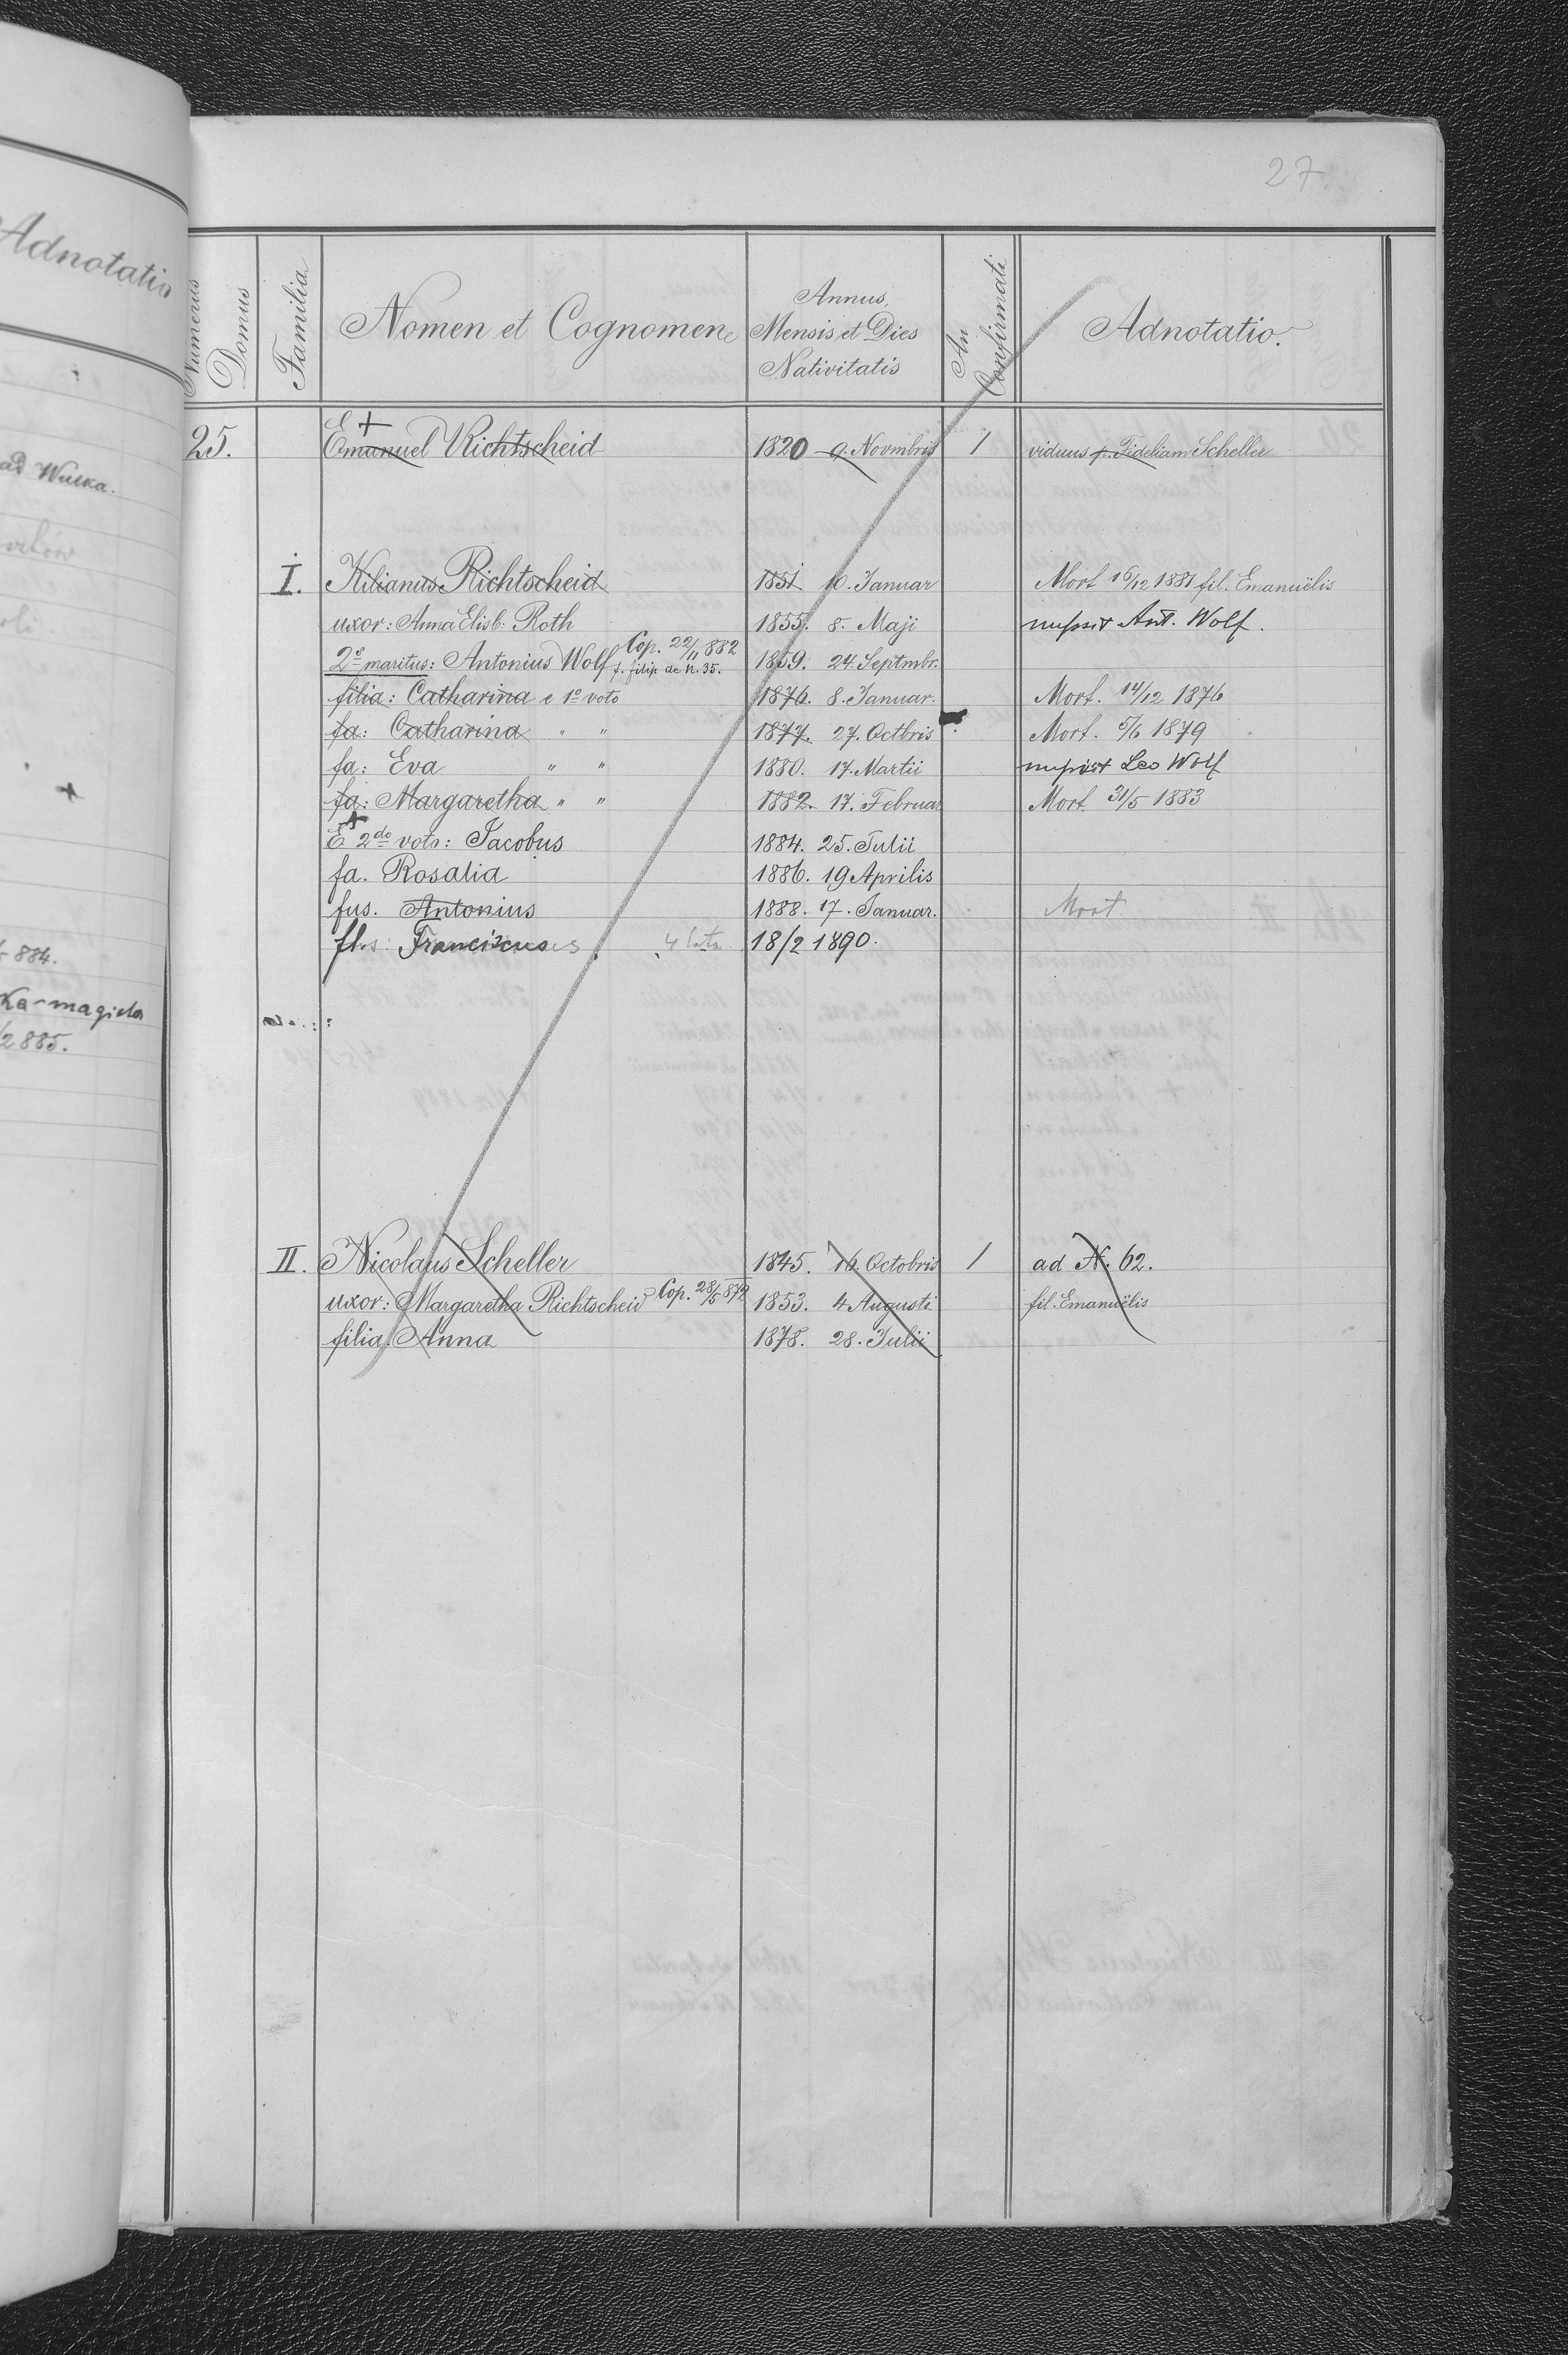 Adnotatio
ad Wulka.
884.
Ka-magista
2 885.
27
Numerus Domus
Familia
Nomen et Cognomen
Annus, Mensis et Dies Nativitatis
An Confirmati
Adnotatio.
25. Emanuel Richtscheid 1820 9. Novmbris 1 viduus p. Fideliam Scheller
I. Kilianus Richtscheid 1851. 10. Januar Mort 16/12 1881 fil. Emanuëlis
uxor: Anna Elisb: Roth 1855. 8. Maji nupsit Ant. Wolf.
2º maritus: Antonius Wolf Cop. 22/11 882 f. filip de N. 35. 1859. 24. Septmbr.
filia: Catharina e 1º voto 1876. 8. Januar. Mort. 14/12 1876
fa: Catharina " " 1877. 27. Octbris Mort. 5/6 1879
fa: Eva " " 1880. 17. Martii nupsit Leo Wolf
fa: Margaretha " " 1882. 17. Februar Mort. 31/5 1883
E 2do voto: Jacobus 1884. 25. Julii
fa. Rosalia 1886. 19 Aprilis
fus. Antonius 1888. 17. Januar. Mort
fl.s: Franciscus 4 lata 18/2 1890.
II. Nicolaus Scheller 1845. 16. Octobris 1 ad N. 62.
uxor: Margaretha Richtscheid Cop. 28/5 872 1853. 4 Augusti fil. Emanuëlis
filia: Anna 1878. 28. Julii